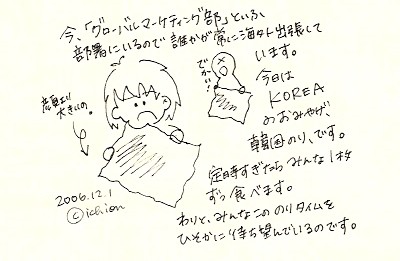 今、「グローバルマーケティング部」という、
部署にいるので 誰かが常に海外出張して
います。
今日は
KOREA
のおみやげ、
韓国のり、です。
定時すぎたら みんな1枚
ずつ食べます。
わりと、みんなこの のりタイムを
ひそかに待ち望んでいるのです。
でかい!
顔より
大きいの。
2006.12.1
©ichion